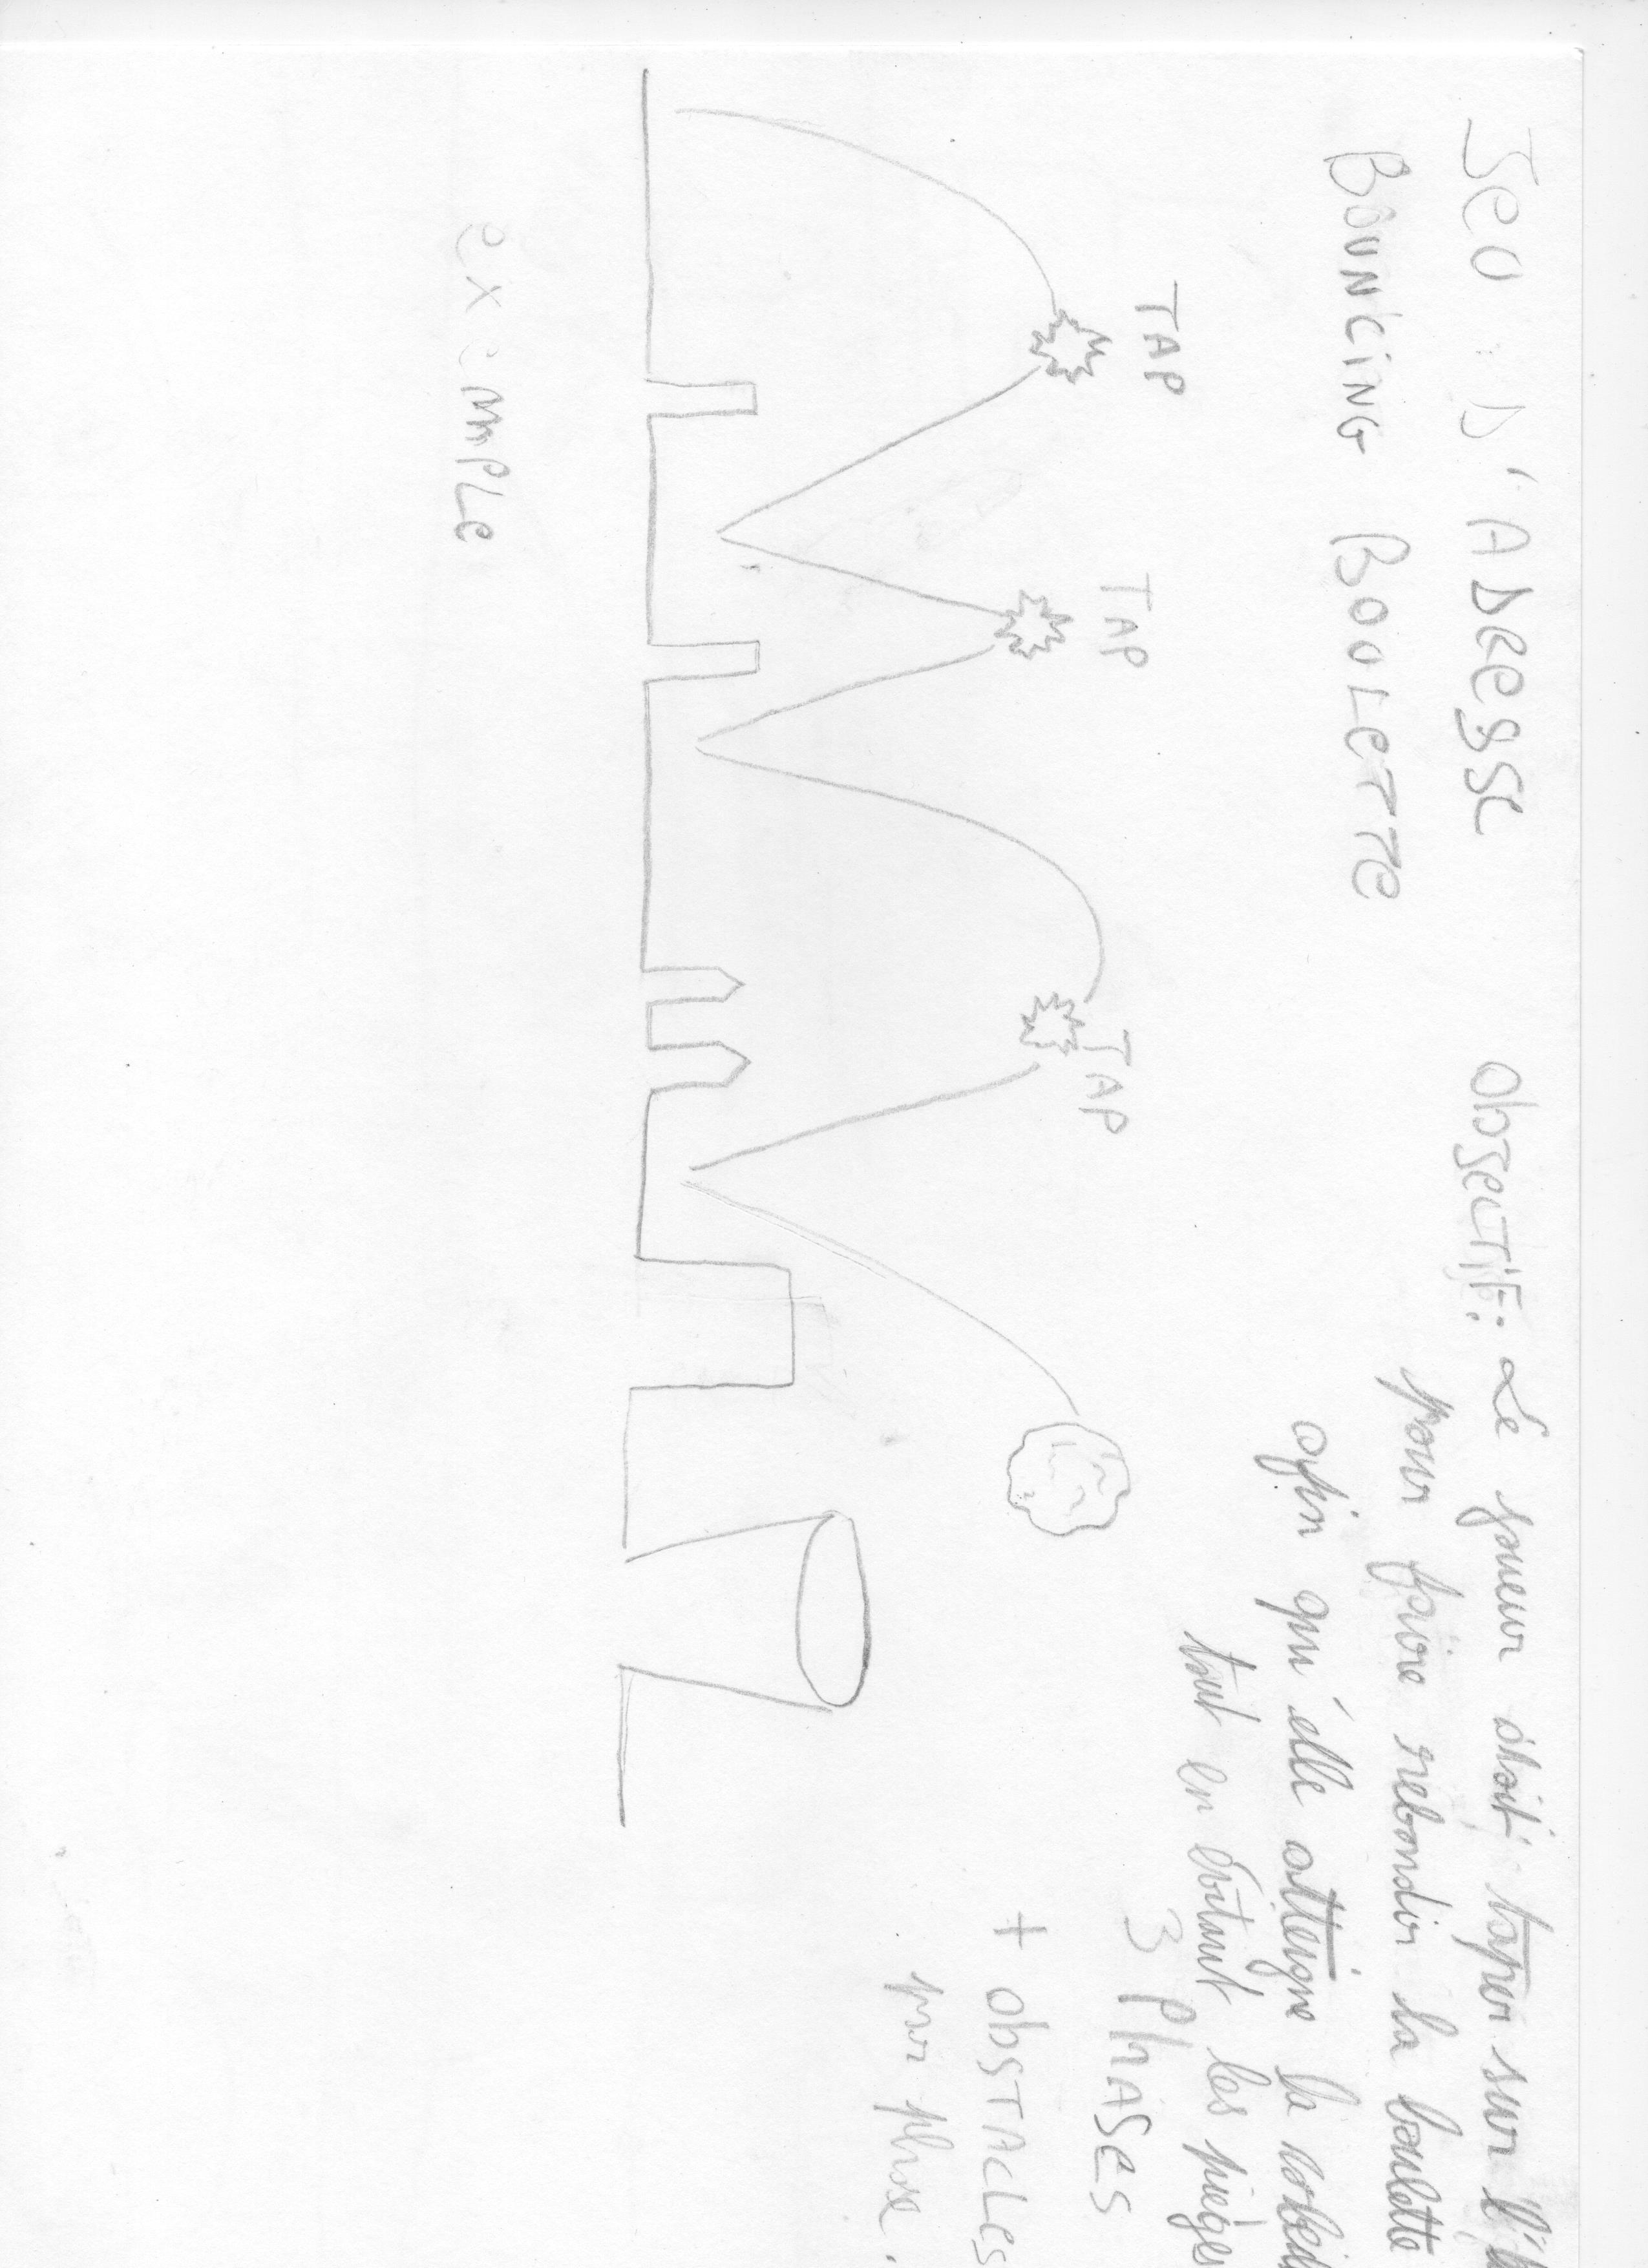 Jeu : D'ADRESSE
BOUNCING BOULETTE
ObjecTiF: Le joueur doit taper sur l'
pour faire rebondir la boulette
afin qu'elle atteigne la
tout en évitant les pièges
TAP
TAP
TAP
3 PhASeS
+ obSTACLeS
par phase.
exemPLe